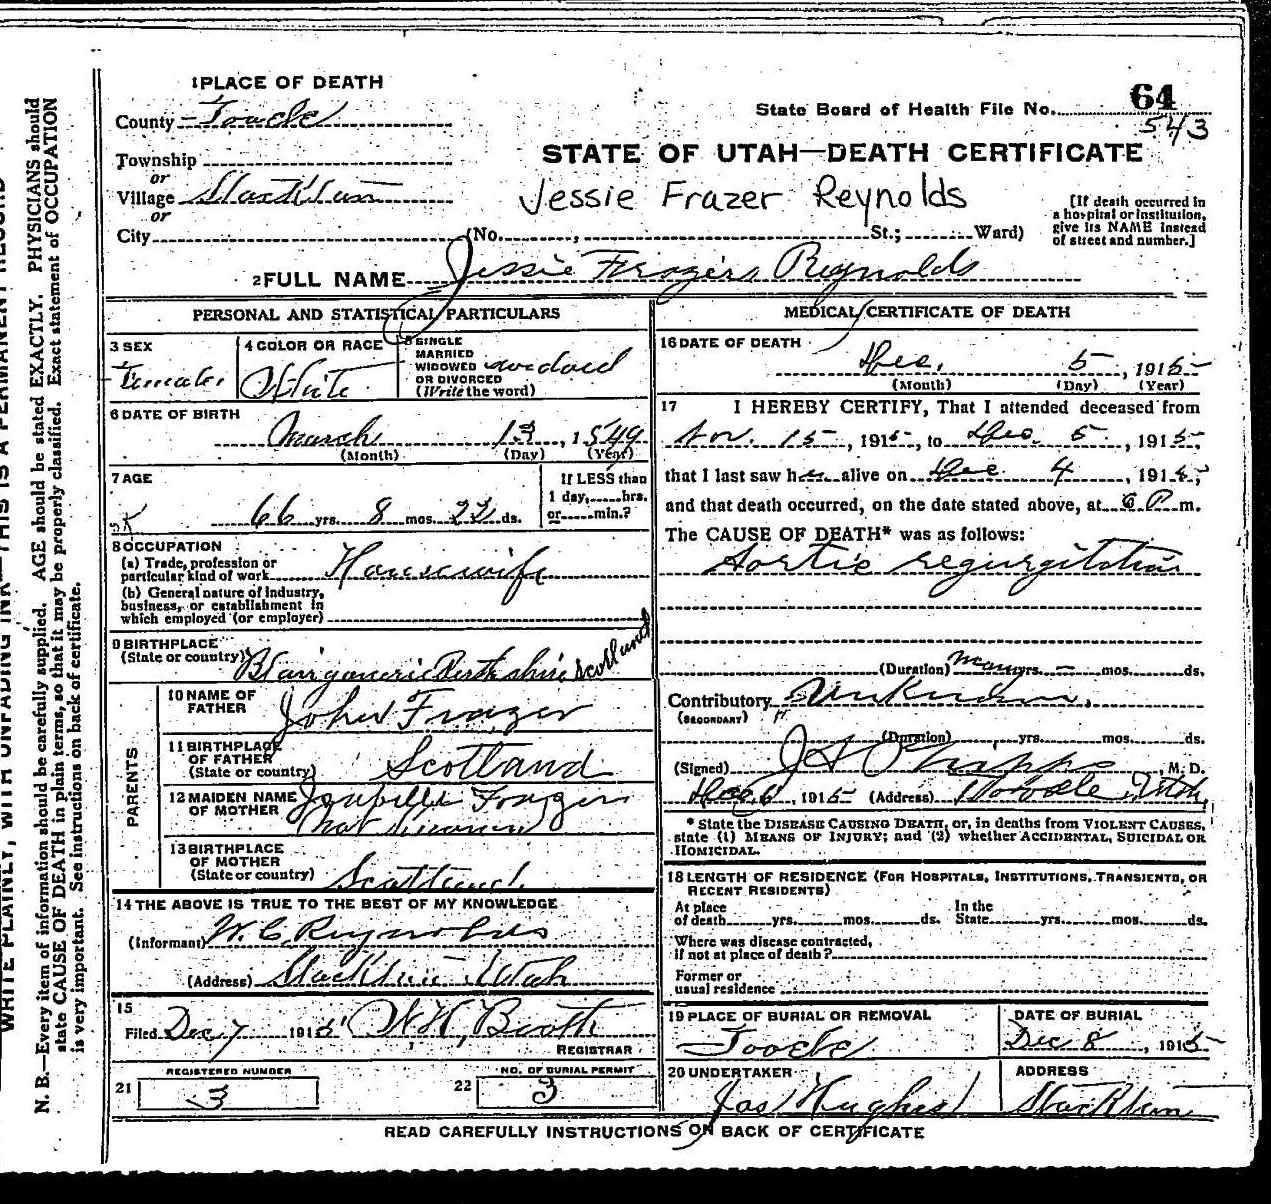 1 PLACE OF DEATH
County Tooele
Township
or
Village Stockton
or
City (No. , St.; Ward)
State Board of Health File No. 64
543
STATE OF UTAH—DEATH CERTIFICATE
Jessie Frazer Reynolds
[If death occurred in
a hospital or institution,
give its NAME instead
of street and number.]
2 FULL NAME Jessie Frazier Reynolds
PERSONAL AND STATISTICAL PARTICULARS
3 SEX
Female
4 COLOR OR RACE
White
5 SINGLE
MARRIED
WIDOWED
OR DIVORCED
(Write the word)
widowed
6 DATE OF BIRTH
March 13, 1849
(Month) (Day) (Year)
7 AGE
66 yrs. 8 mos. 22 ds.
If LESS than
1 day, hrs.
or min.?
8 OCCUPATION
(a) Trade, profession or
particular kind of work Housewife
(b) General nature of industry,
business, or establishment in
which employed (or employer)
9 BIRTHPLACE
(State or country) Perthshire Scotland
PARENTS
10 NAME OF
FATHER
John Frazer
11 BIRTHPLACE
OF FATHER
(State or country) Scotland
12 MAIDEN NAME
OF MOTHER
Isabelle Frazer
Not
13 BIRTHPLACE
OF MOTHER
(State or country) Scotland
14 THE ABOVE IS TRUE TO THE BEST OF MY KNOWLEDGE
(Informant) W. C. Reynolds
(Address) Stockton Utah
15
Filed Dec 7 1915 W H, Booth
REGISTRAR
REGISTERED NUMBER
21 3
NO. OF BURIAL PERMIT
22 3
MEDICAL CERTIFICATE OF DEATH
16 DATE OF DEATH
Dec. 5, 1915
(Month) (Day) (Year)
17 I HEREBY CERTIFY, That I attended deceased from
Nov. 15, 1915, to Dec. 5, 1915
that I last saw her alive on Dec. 4, 1915,
and that death occurred, on the date stated above, at 6 P. m.
The CAUSE OF DEATH* was as follows:
Aortic regurgitation
(Duration) Many yrs. – mos. ds.
Contributory Unknown.
(SECONDARY)
(Duration) yrs. mos. ds.
(Signed) J H Phipps, M. D.
Dec. 6, 1915 (Address) Tooele, Utah,
* State the DISEASE CAUSING DEATH, or, in deaths from VIOLENT CAUSES,
state (1) MEANS OF INJURY; and (2) whether ACCIDENTAL, SUICIDAL OR
HOMICIDAL.
18 LENGTH OF RESIDENCE (FOR HOSPITALS, INSTITUTIONS, TRANSIENTS, OR
RECENT RESIDENTS)
At place
of death yrs. mos. ds.
In the
State yrs. mos. ds.
Where was disease contracted,
if not at place of death?
Former or
usual residence
19 PLACE OF BURIAL OR REMOVAL
Tooele
DATE OF BURIAL
Dec 8, 1915
20 UNDERTAKER
Jas Hughes
ADDRESS
Stockton
READ CAREFULLY INSTRUCTIONS ON BACK OF CERTIFICATE
WRITE PLAINLY, WITH UNFADING INK—THIS IS A PERMANENT RECORD
N. B.—Every item of information should be carefully supplied. AGE should be stated EXACTLY. PHYSICIANS should
state CAUSE OF DEATH in plain terms, so that it may be properly classified. Exact statement of OCCUPATION
is very important. See instructions on back of certificate.